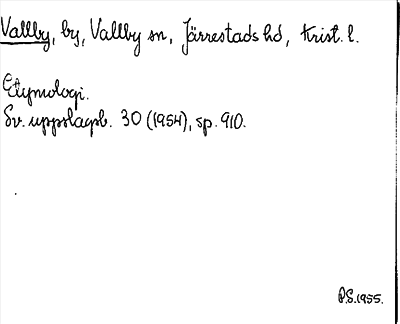 Vallby, by, Vallby sn, Järrestads hd, Krist. l.
Etymologi.
Sv. uppslagsb. 30 (1954), sp. 910.
P.S. 1955.